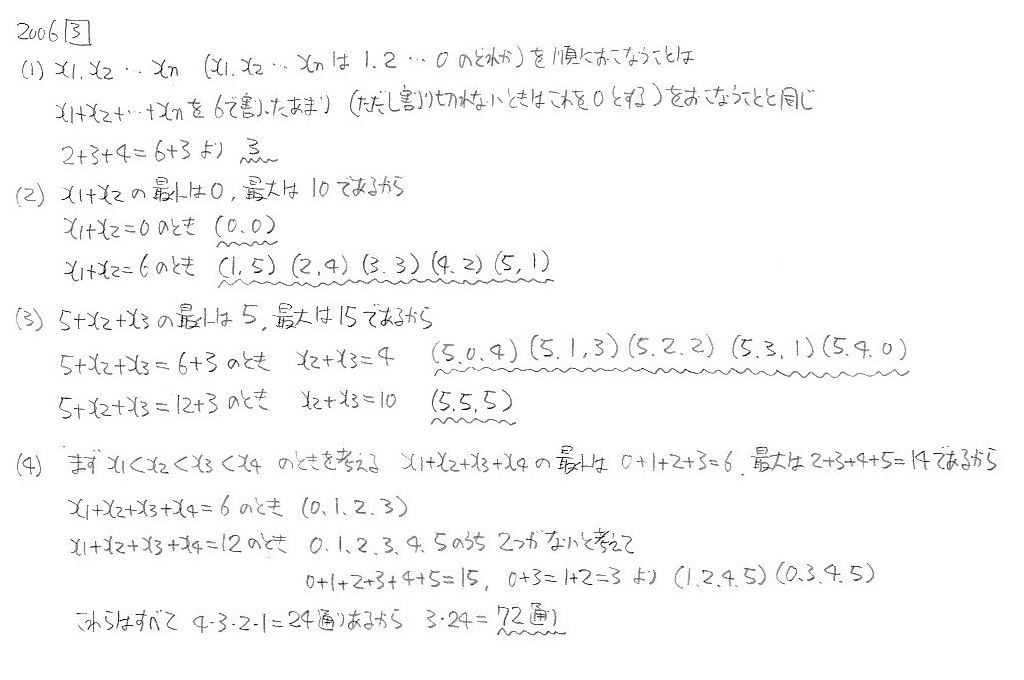 2006 3
(1) x1, x2 … xn (x1, x2 … xn は 1, 2 … 0 のどれか) を順におこなうことは
x1+x2+…+xn を 6で割ったあまり (ただし割り切れないときはこれを0とする) をおこなうことと同じ
2+3+4=6+3 より 3
(2) x1+x2 の最小は0, 最大は10であるから
x1+x2=0 のとき (0,0)
x1+x2=6 のとき (1,5) (2,4) (3,3) (4,2) (5,1)
(3) 5+x2+x3 の最小は5, 最大は15であるから
5+x2+x3=6+3 のとき x2+x3=4 (5,0,4) (5,1,3) (5,2,2) (5,3,1) (5,4,0)
5+x2+x3=12+3 のとき x2+x3=10 (5,5,5)
(4) まず x1<x2<x3<x4 のときを考える x1+x2+x3+x4 の最小は 0+1+2+3=6, 最大は 2+3+4+5=14であるから
x1+x2+x3+x4=6 のとき (0,1,2,3)
x1+x2+x3+x4=12 のとき 0,1,2,3,4,5のうち 2つがないと考えて
0+1+2+3+4+5=15, 0+3=1+2=3 より (1,2,4,5) (0,3,4,5)
これらはすべて 4·3·2·1=24通りあるから 3·24=72通り